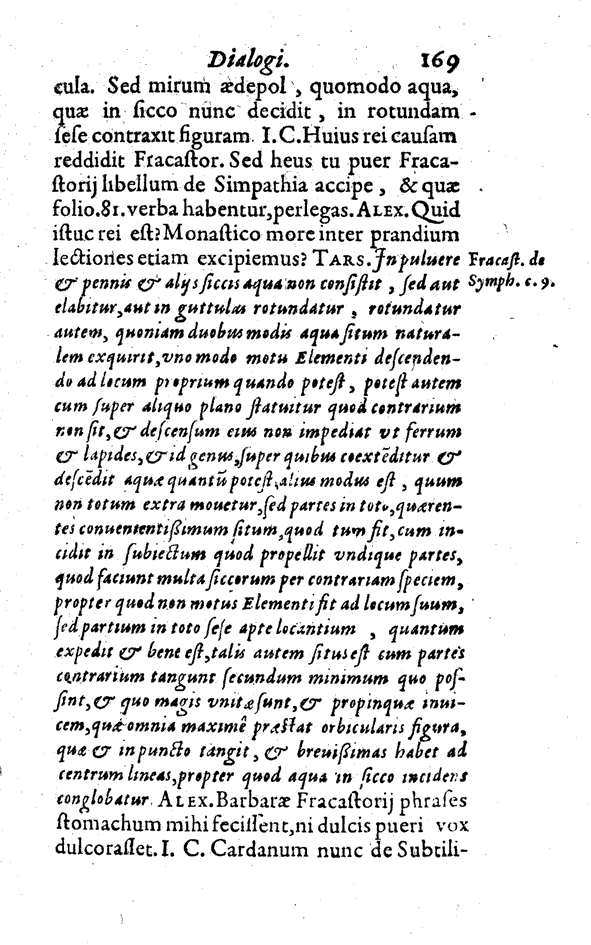 Dialogi. 169
cula. Sed mirum ædepol, quomodo aqua,
quæ in ſicco nunc decidit, in rotundam
ſeſe contraxit figuram. I. C. Huius rei cauſam
reddidit Fracaſtor. Sed heus tu puer Fraca-
ſtorij libellum de Simpathia accipe, & quæ
folio. 81. verba habentur, perlegas. ALEX. Quid
iſtuc rei eſt? Monaſtico more inter prandium
lectiones etiam excipiemus? TARS. In puluere
Fracaſt. de
Symph. c. 9.
& pennis & alijs ſiccis aqua non conſiſtit, ſed aut
elabitur, aut in guttulas rotundatur, rotundatur
autem, quoniam duobus modis aqua ſitum natura-
lem exquirit, vno modo motu Elementi deſcenden-
do ad locum proprium quando poteſt, poteſt autem
cum ſuper aliquo plano ſtatuitur quod contrarium
non ſit, & deſcenſum eius non impediat vt ferrum
& lapides, & id genus, ſuper quibus coextēditur &
deſcēdit aquæ quantū poteſt, alius modus eſt, quum
non totum extra mouetur, ſed partes in toto, quæren-
tes conuenientißimum ſitum, quod tum fit, cum in-
cidit in ſubiectum quod propellit vndique partes,
quod faciunt multa ſiccorum per contrariam ſpeciem,
propter quod non motus Elementi fit ad locum ſuum,
ſed partium in toto ſeſe apte locantium, quantum
expedit & bene eſt, talis autem ſitus eſt cum partes
contrarium tangunt ſecundum minimum quo poſ-
ſint, & quo magis vnitæ ſunt, & propinquæ inui-
cem, quæ omnia maximè præſtat orbicularis figura,
quæ & in puncto tangit, & breuißimas habet ad
centrum lineas, propter quod aqua in ſicco incidens
conglobatur. ALEX. Barbaræ Fracaſtorij phraſes
ſtomachum mihi feciſſent, ni dulcis pueri vox
dulcoraſſet. I. C. Cardanum nunc de Subtili-